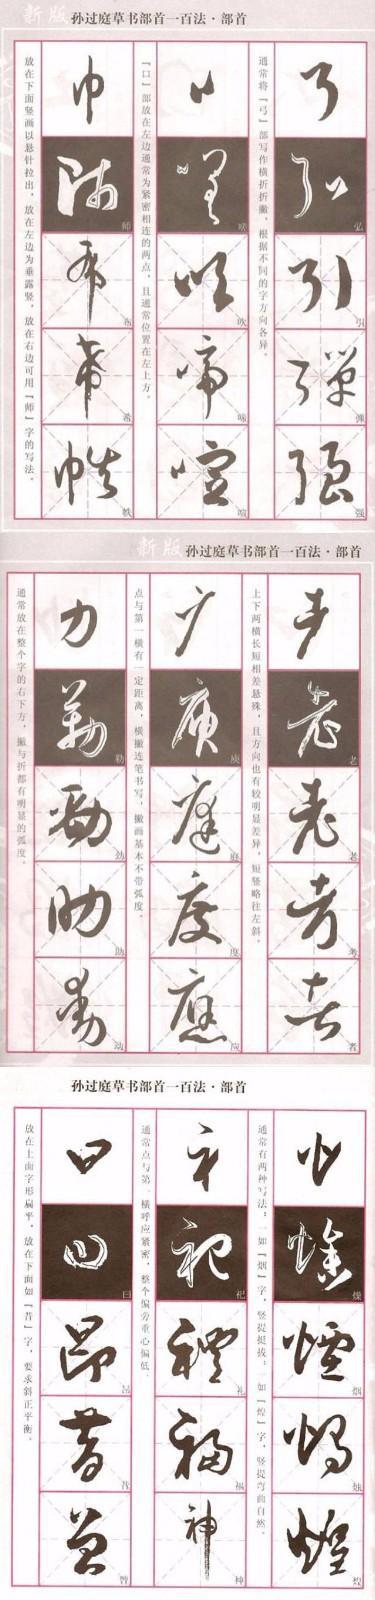 新版 孙过庭草书部首一百法·部首
通常将「弓」部写作横折折撇，根据不同的字方向各异。
弓
弘
引
弹
强
「口」部放在左边通常为紧密相连的两点，且通常位置在左上方。
口
吹
啼
喧
放在下面竖画以悬针拉出，放在左边为垂露竖，放在右边可用「师」字的写法。
巾
师
布
希
帙
新版 孙过庭草书部首一百法·部首
上下两横长短相差悬殊，且方向也有较明显差异，短竖略往左斜。
老
老
考
者
点与第一横有一定距离，横撇连笔书写，撇画基本不带弧度。
广
庚
庭
度
应
通常放在整个字的右下方，撇与折都有明显的弧度。
力
勒
劲
助
动
孙过庭草书部首一百法·部首
通常有两种写法：一如「烟」字，竖提挺拔；一如「煌」字，竖提弯曲自然。
火
燥
烟
烛
煌
通常点与第一横呼应紧密，整个偏旁重心偏低。
礻
祀
礼
福
神
放在上面字形扁平，放在下面如「昔」字，要求斜正平衡。
曰
曰
昂
昔
曾